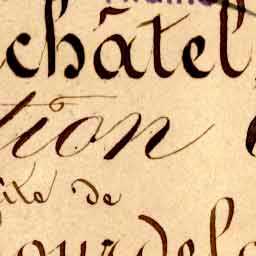 châtel
tion
ite de
ourdel